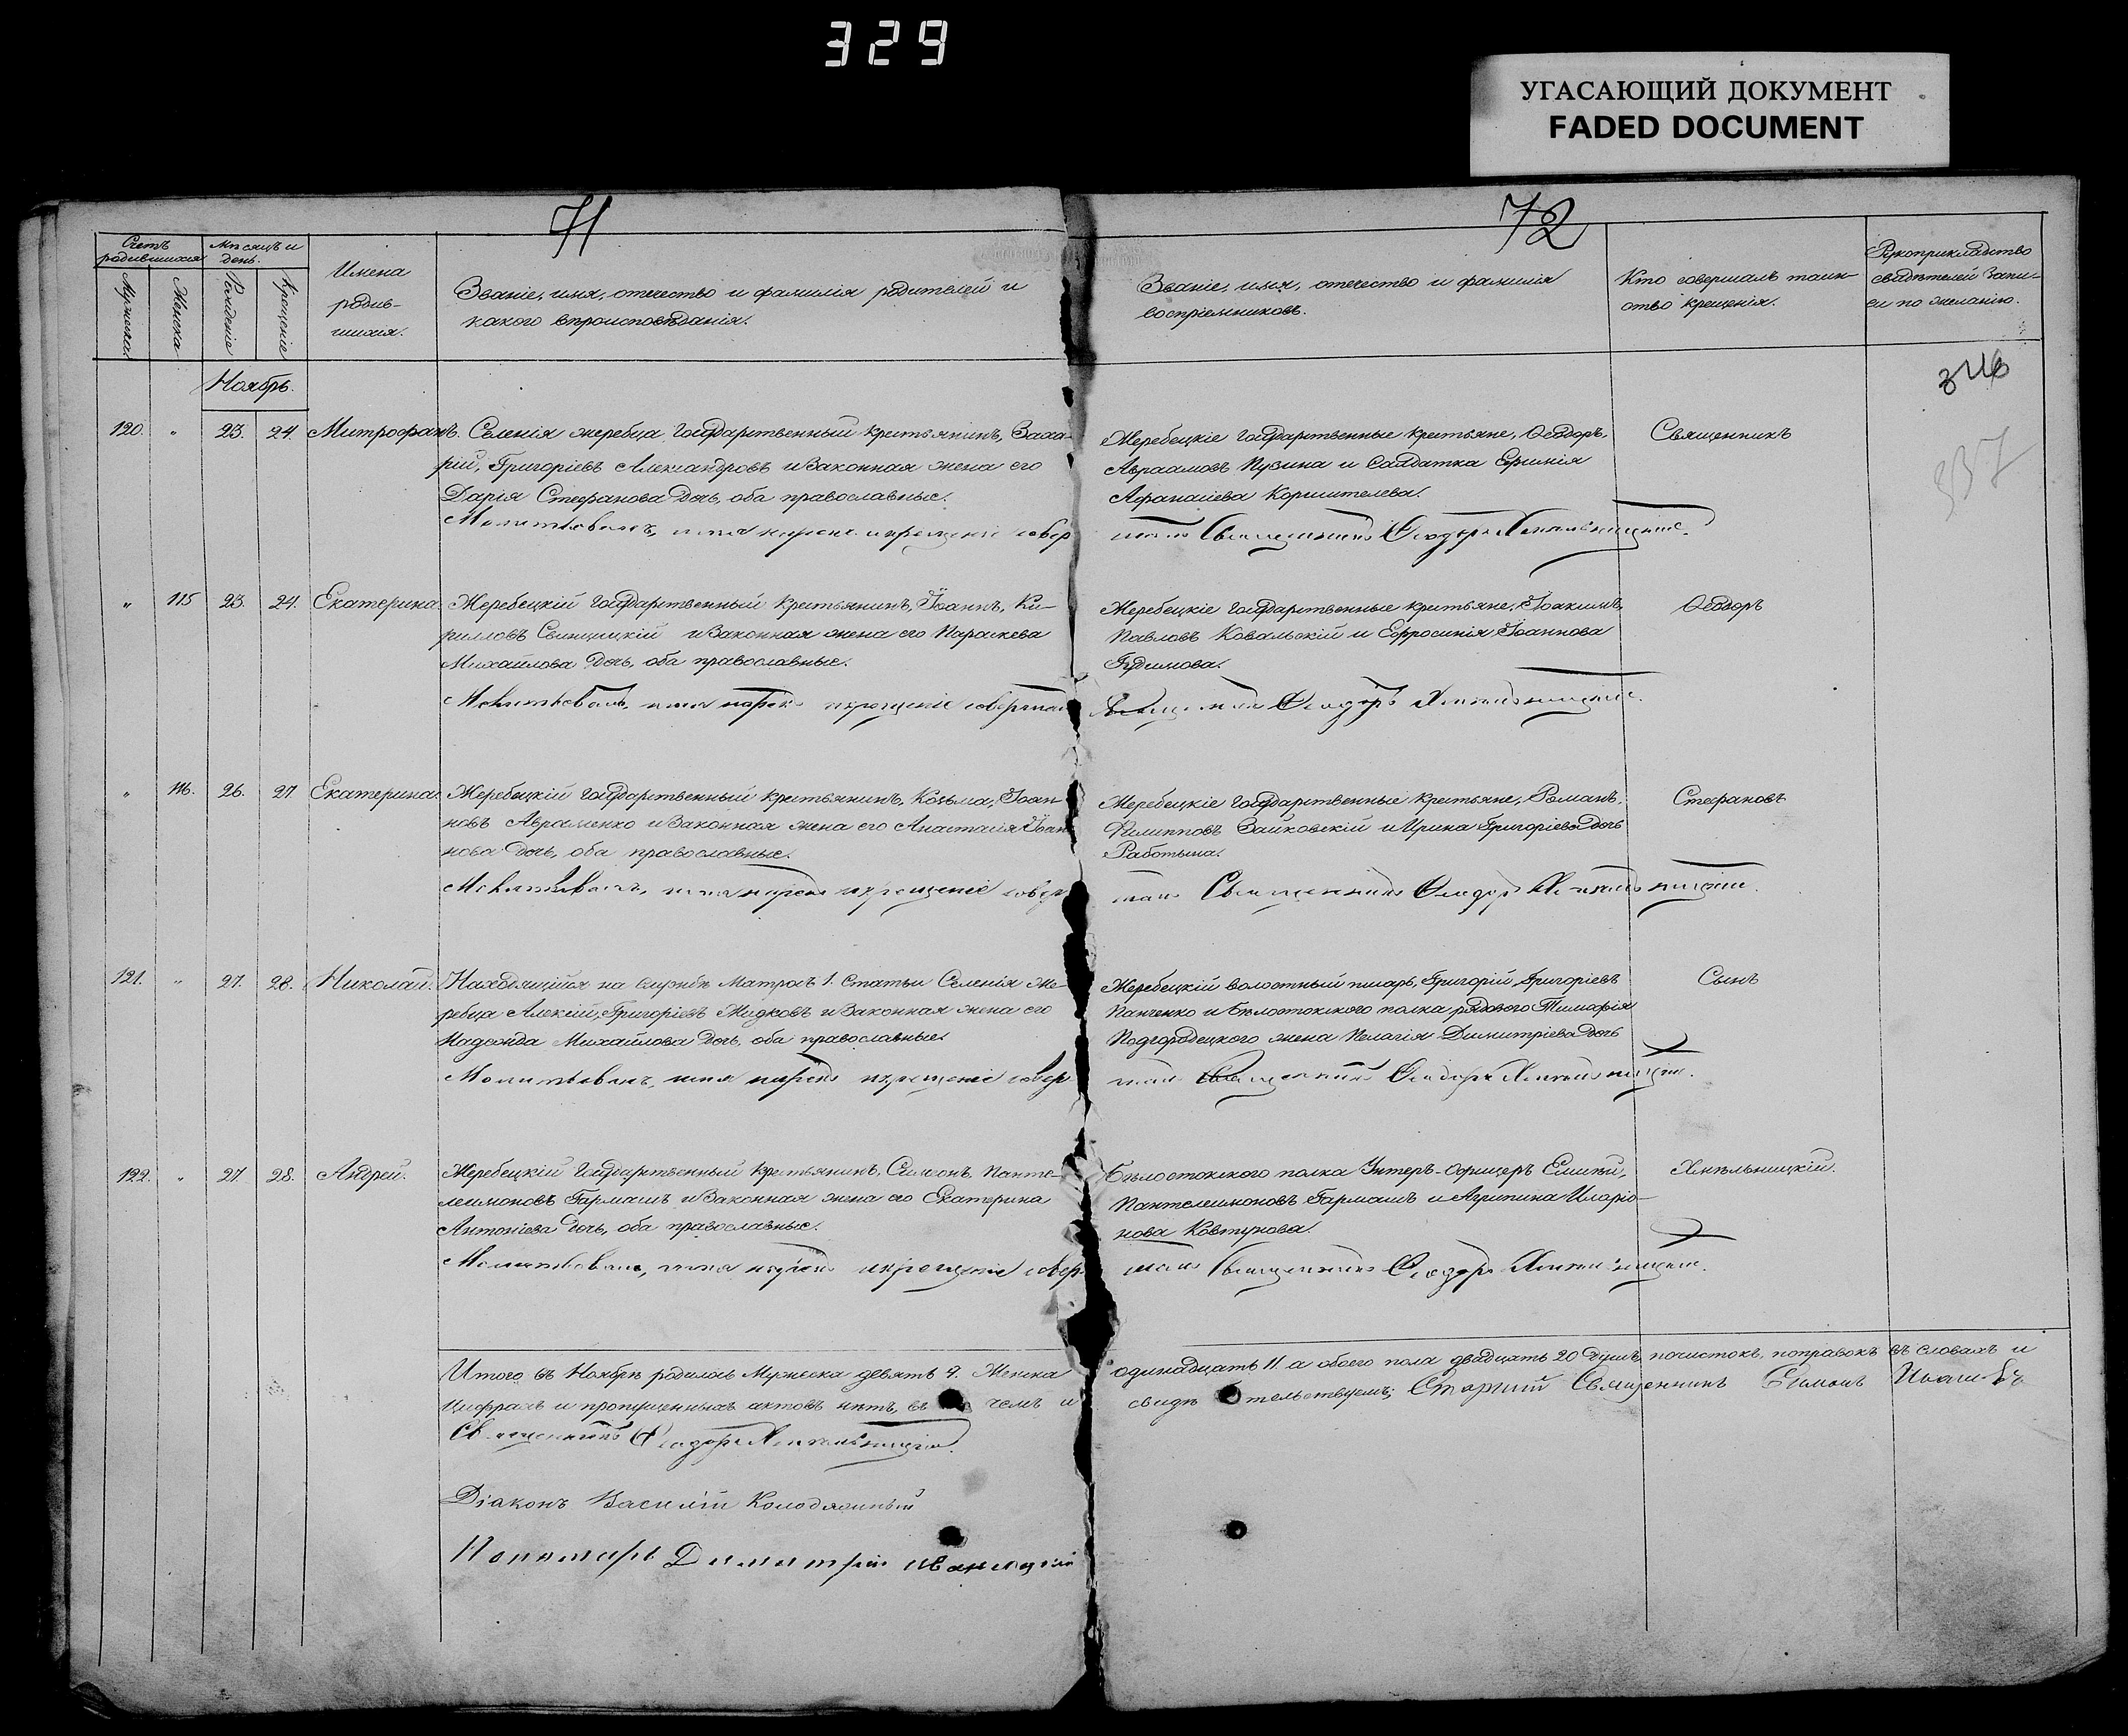 329
УГАСАЮЩИЙ ДОКУМЕНТ
FADED DOCUMENT
71
72
Счетъ родившихся
Мѣсяцъ и день.
Мужеска.
Женска
Рожденіе
Крещеніе
Имена родив-
шихся.
Званіе, имя, отечество и фамилія родителей и
какого вѣроисповѣданія.
Званіе, имя, отечество и фамилія
воспріемниковъ.
Кто совершалъ таин-
ство крещенія.
Рукоприкладство
свидѣтелей запи-
си по желанію.
346
337
Ноябрь.
120. " 23. 24. Митрофанъ. Селенія жеребца государственный крестьянинъ, Заха-
рій, Григоріевъ Александровъ и законная жена его
Дарія Стефанова дочь, оба православные.
Молитвовалъ, имя нарекъ и крещеніе совер
Жеребецкіе государственные крестьяне, Ѳеодоръ,
Авраамовъ Пузина и Солдатка Ефимія
Афанасіева Кормителева.
шалъ Священникъ Ѳеодоръ Хмельницкій.
Священникъ
" 115 23. 24. Екатерина. Жеребецкій государственный крестьянинъ, Іоаннъ, Ки-
рилловъ Свинцицкій и законная жена его Параскева
Михайлова дочь, оба православные.
Молитвовалъ, имя нарекъ и крещеніе совершалъ
Жеребецкіе государственные крестьяне, Іоакимъ,
Павловъ Ковальскій и Евфросинія Іоаннова
Гудимова.
Священникъ Ѳеодоръ Хмельницкій.
Ѳеодоръ
" 116. 26. 27 Екатерина. Жеребецкій государственный крестьянинъ, Козьма, Іоан-
новъ Авраменко и законная жена его Анастасія Іоан-
нова дочь, оба православные.
Молитвовалъ, имя нарекъ и крещеніе совер
Жеребецкіе государственные крестьяне, Романъ,
Филипповъ Зайковскій и Ирина Григоріева дочь
Работына.
шалъ Священникъ Ѳеодоръ Хмельницкій.
Стефановъ
121. " 27. 28. Николай. Находящійся на службѣ Матросъ 1. статьи Селенія же-
ребца Алексій, Григоріевъ Жидковъ и законная жена его
Надежда Михайлова дочь, оба православные.
Молитвовалъ, имя нарекъ и крещеніе совер
Жеребецкій волостный писарь, Григорій Григоріевъ
Панченко и Бѣлостокскаго полка рядового Тимофія
Подгородецкого жена Пелагія Димитріева дочь
шалъ Священникъ Ѳеодоръ Хмельницкій.
Сынъ
122. " 27. 28. Андрей. Жеребецкій государственный крестьянинъ, Симонъ, Панте-
леимоновъ Гармашъ и законная жена его Екатерина
Антоніева дочь, оба православные.
Молитвовалъ, имя нарекъ и крещеніе совер
Бѣлостокского полка Унтеръ-Офицеръ
Пантелеимоновъ Гармашъ и Агрипина Иларіо-
нова Ковтунова.
шалъ Священникъ Ѳеодоръ Хмельницкій.
Хмѣльницкій.
Итого въ Ноябрѣ родилось Мужеска девять 9. Женска одинадцать 11. а обоего пола двадцать 20 душъ, почистокъ, поправокъ въ словахъ и
Цифрахъ и пропущенныхъ актовъ нѣтъ, въ чемъ и свидѣтельствуемъ; Старший Священникъ Симонъ
Священникъ Ѳеодоръ Хмельницкій.
Діаконъ Василій Колодяжный
Пономарь Димитрій